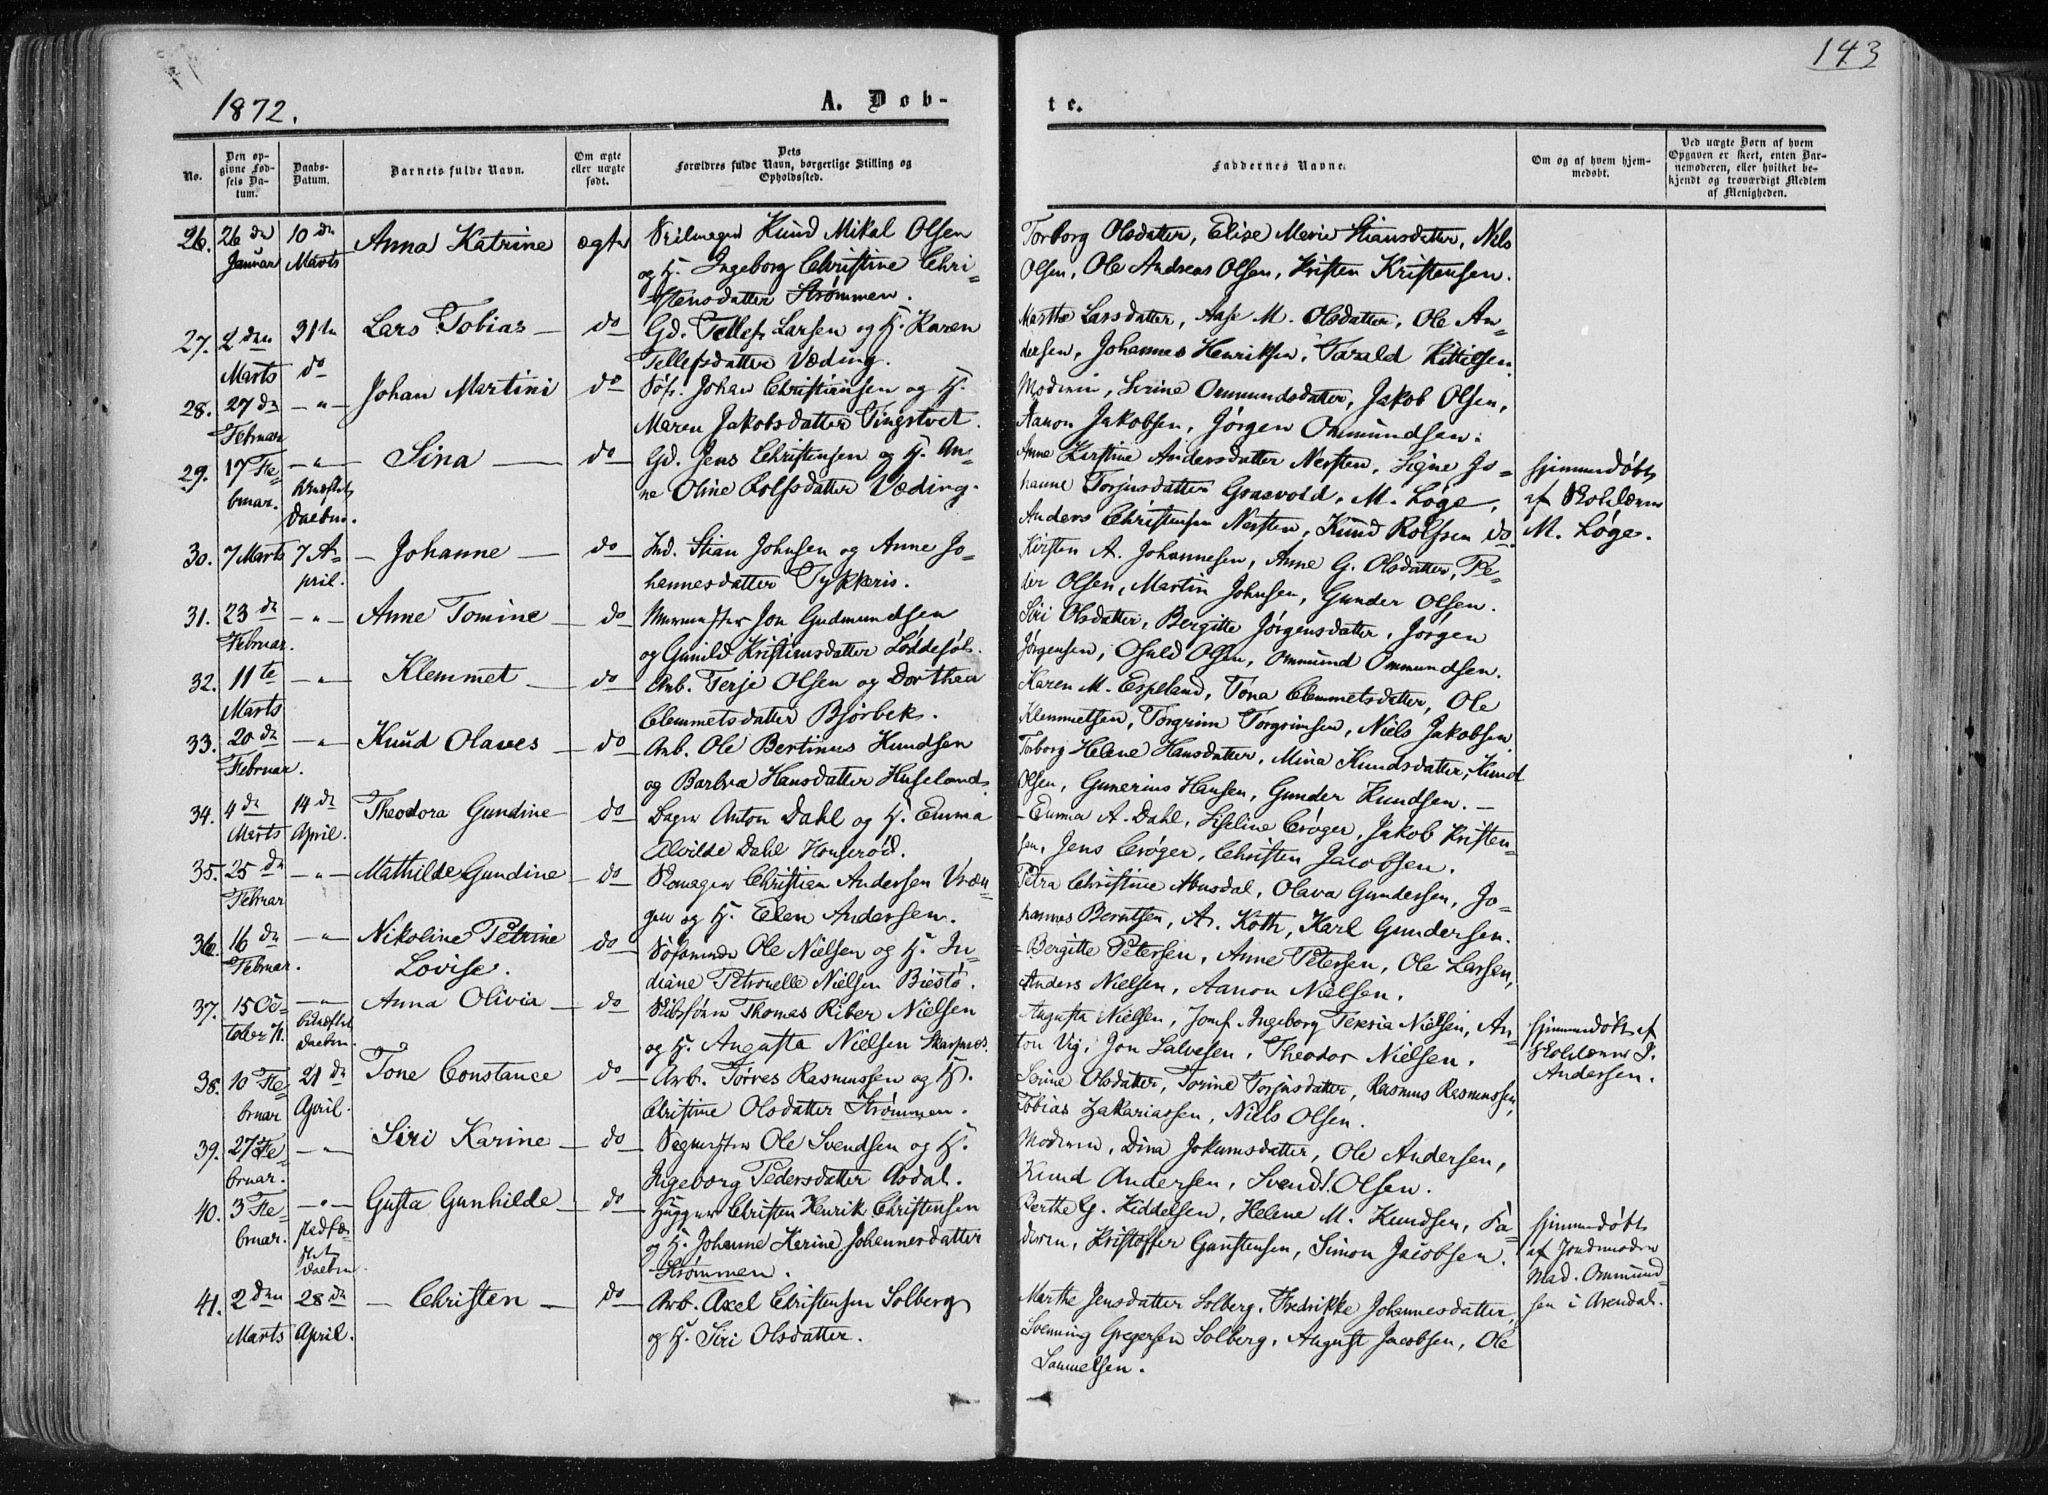 143
1872.
A. Døb-
te.
No.
Den op-
givne Fød-
sels Da-
tum.
Daabs-
Datum.
Barnets fulde Navn.
Om ægte
eller uægte
født.
Dets
Forældres fulde Navn, borgerlige Stilling og
Opholdssted.
Faddernes Navne.
Om og af hvem hjem-
medøbt.
Ved uægte Børn af hvem
Opgaven er skeet, enten Bar-
nemoderen, eller hvilket be-
kjendt og troværdigt Medlem
af Menigheden.
26. 26de Januar 10de Marts Anna Katrine ægte Seilmager Knud Mikal Olsen
og H. Ingeborg Christine Chri-
stensdatter Strømmen.
Torborg Olsdatter, Elise Marie Stiansdatter, Nils
Olsen, Ole Andreas Olsen, Kristen Kristensen.
27. 2den Marts 31te do Lars Tobias do Gd. Tellef Larsen og H. Karen
Tellefsdatter Væding.
Marthe Larsdatter, Aase M. Olsdatter, Ole An-
dersen, Johannes Henriksen, Tarald Kittilsen.
28. 27de Februar - " - Johan Martini do Søf. Johan Christiansen og H.
Maren Jakobsdatter Tingstvet.
Moderen, Serine Ommundsdatter, Jakob Olsen,
Aanon Jakobsen, Jørgen Ommundsen.
29. 17 Fe-
bruar. - " - Sina do Gd. Jens Christensen og H. An-
ne Oline Rolfsdatter Væding.
Anne Kirstine Andersdatter Nersten, Signe Jo-
hanne Torjusdatter Graavold, M. Løge,
Anders Christensen Nersten, Knud Rolfsen do.
hjemmedøbt
af Skolelærer
M. Løge.
30. 7 Marts 7 A-
pril. Johanne do Ind. Stian Johnsen og Anne Jo-
hannesdatter Tykkeris.
Kirsten A. Johannesen, Anne G. Olsdatter, Pe-
der Olsen, Martin Johnsen, Gunder Olsen.
31. 23de Februar. - " - Anne Tomine do Murmester Jon Gudmundsen
og Gunild Kristiansdatter Løddesøl.
Siri Olsdatter, Bergitte Jørgensdatter, Jørgen
Jørgensen, Osuld Olsen, Ommund Ommundsen.
32. 11te Marts - " - Klemmet do Arb. Terje Olsen og Dorthea
Clemmetsdatter Bjørbek.
Karen M. Espeland, Tona Clemmetsdatter, Ole
Klemmetsen, Torgrim Torgrimsen, Niels Jakobsen
33. 20de Februar. - " - Knud Olaves do Arb. Ole Bertinus Knudsen
og Barbra Hansdatter Huseland.
Torborg Helene Hansdatter, Mina Knudsdatter, Knud
Olsen, Gunerius Hansen, Gunder Knudsen.
34. 4de Marts 14de April. Theodora Gundine do Bager Anton Dahl og H. Emma
Alvilde Dahl Songerød.
Emma A. Dahl, Liseline Crøger, Jakob Kristen-
sen, Jens Crøger, Christen Jacobsen.
35. 25de Februar - " - Mathilde Gundine do Skomager Christian Andersen Vræn-
gen og H. Elen Andersen.
Petra Christine Abusdal, Olava Gundersen, Jo-
hannes Berntsen, A. Koth, Karl Gundersen.
36. 16de Februar. - " - Nikoline Petrine
Lovise. do Søfarende Ole Nielsen og H. In-
diane Petronelle Nielsen Biestø.
Bergitte Petersen, Anne Petersen, Ole Larsen,
Anders Nielsen, Aanon Nielsen.
37. 15 Oc-
tober 71. - " - Anna Olivia do Skibsfører Thomas Riber Nielsen
og H. Augusta Nielsen Skarpnes.
Augusta Nielsen, Jomf. Ingeborg Teresia Nielsen, An-
ton Vig, Jon Salvesen, Theodor Nielsen.
hjemmedøbt af
Skolelærer J.
Andersen.
38. 10 Fe-
bruar 21de April. Tone Constance do Arb. Tørres Rasmussen og H.
Christine Olsdatter Strømmen.
Serine Olsdatter, Torine Torjusdatter, Rasmus Rasmussen,
Tobias Zakariassen, Niels Olsen.
39. 27 Fe-
bruar. - " - Siri Karine do Sagmester Ole Svendsen og H.
Ingeborg Pedersdatter Asdal.
Moderen, Dina Jokumsdatter, Ole Andersen,
Knud Andersen, Svend Olsen.
40. 3 Fe-
bruar. - " - Gusta Gunhilde do Hugger Christen Henrik Christensen
og H. Johanne Karine Johannesdatter
Strømmen.
Berthe G. Kiddelsen, Helene M. Knudsen, Fa-
deren, Kristoffer Garstensen, Simon Jacobsen.
hjemmedøbt
af Jordmoder
Mad. Ommund-
sen i Arendal.
41. 2den Marts 28de April. Christen do Arb. Axel Christensen Solberg
og H. Siri Olsdatter.
Marthe Jensdatter Solberg, Fredrikke Johannesdatter,
Svenning Gregersen Solberg, August Jacobsen, Ole
Samuelsen.